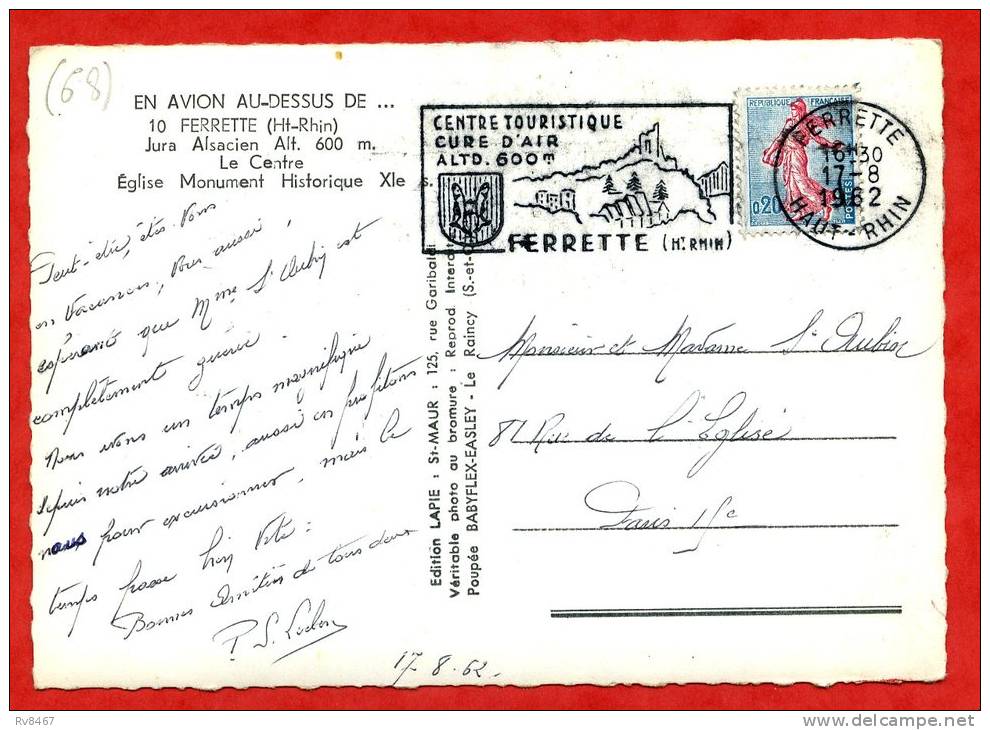 (68)
EN AVION AU-DESSUS DE ...
10 FERRETTE (Ht-Rhin)
Jura Alsacien Alt. 600 m.
Le Centre
Église Monument Historique XIe s.
CENTRE TOURISTIQUE
CURE D'AIR
ALTD. 600m
FERRETTE (HT RHIN)
REPUBLIQUE FRANÇAISE
0,20
POSTES
FERRETTE
16H30
17-8
1962
HAUT-RHIN
Peut-être, êtes-vous
en vacances, vous aussi,
espérant que Mme St Aubin est
complètement guérie.
Nous avons un temps magnifique
depuis notre arrivée, aussi en profitons
nous pour excursionner, mais le
temps passe bien vite.
Bonnes Amitiés de tous deux
17.8.62.
Edition LAPIE : St-MAUR : 125, rue Garibaldi
Véritable photo au bromure : Reprod. Interd.
Poupée BABYFLEX-EASLEY - Le Raincy (S.-et-O.
Monsieur et Madame St Aubin
82 Rue de l'Eglise
Paris 15e
Rv8467
delcampe.net